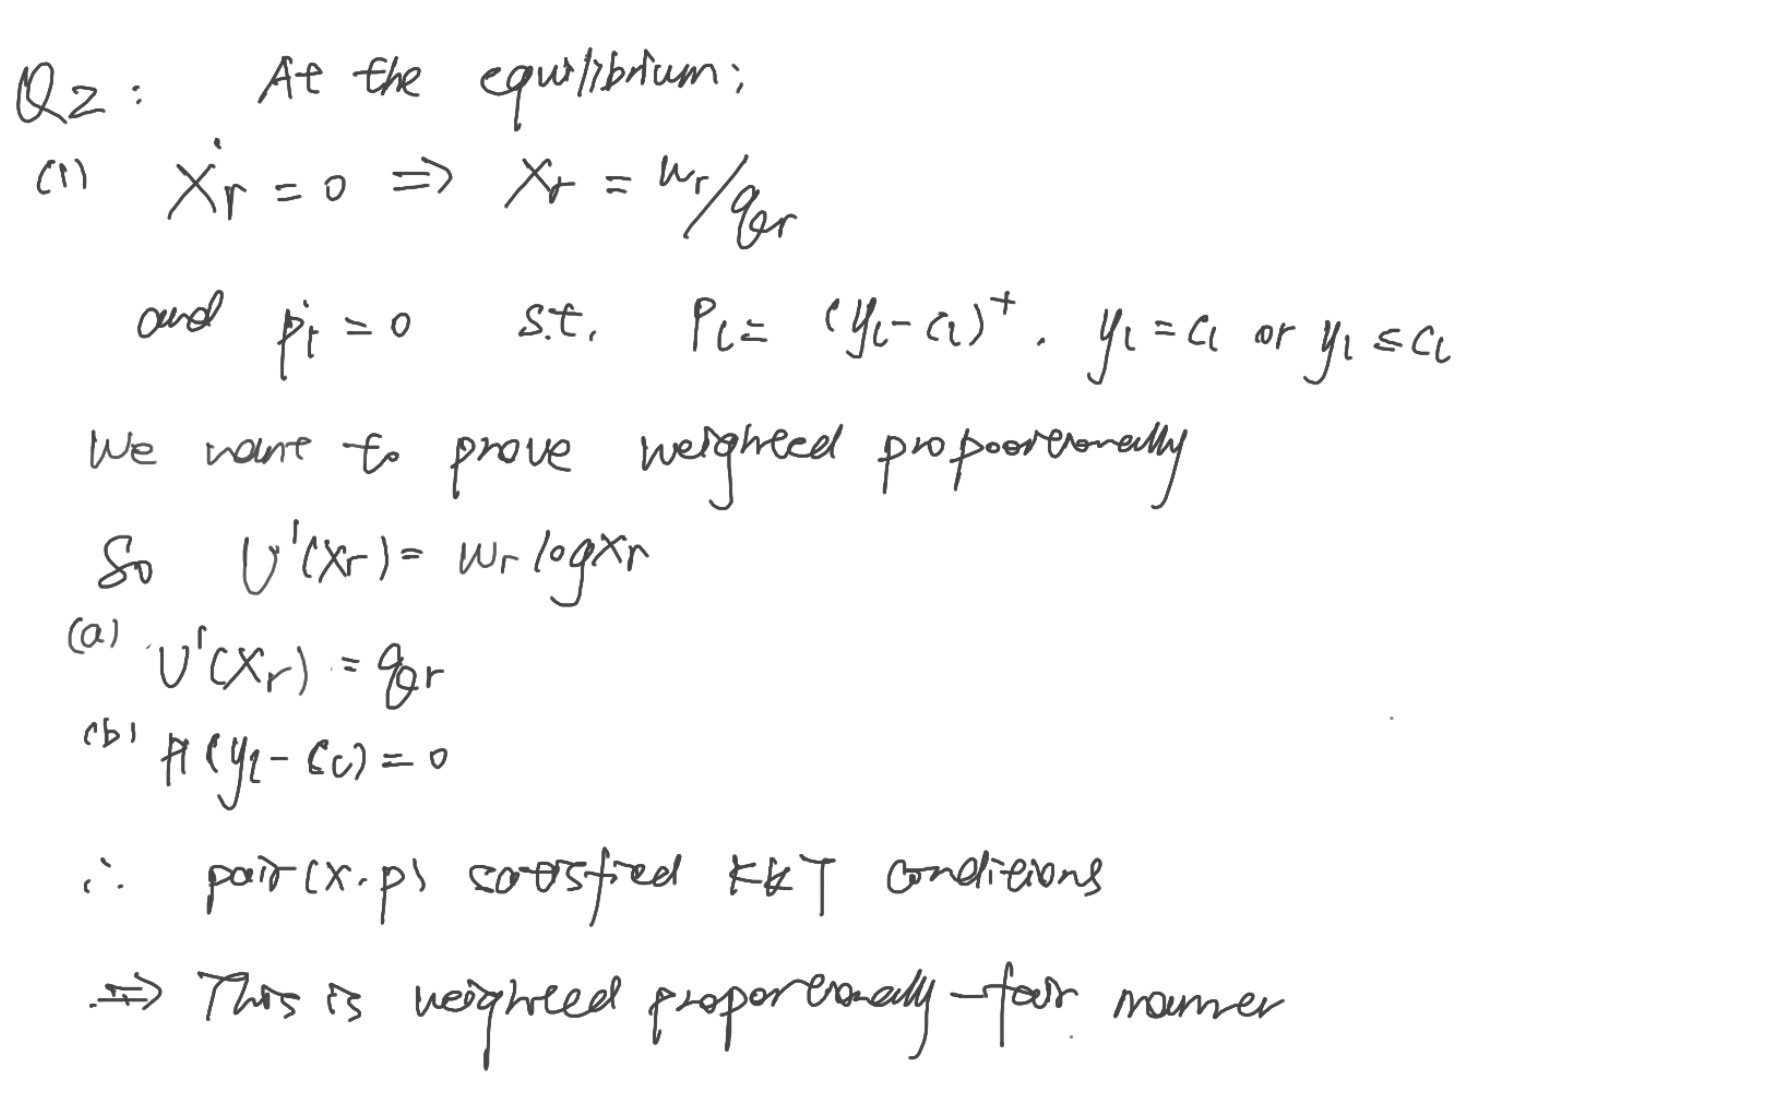 Q2: At the equilibrium;
(1) ẋr = 0 ⇒ xr = wr/qr
and ṗl = 0 s.t. Pl = (yl - cl)⁺. yl = cl or yl ≤ cl
We want to prove weighted propoortionally
So U'(xr) = wr log xr
(a) U'(xr) = qr
(b) Pl (yl - cl) = 0
∴ pair (x, p) satisfied KKT conditions
⇒ This is weighted proportionally-fair manner